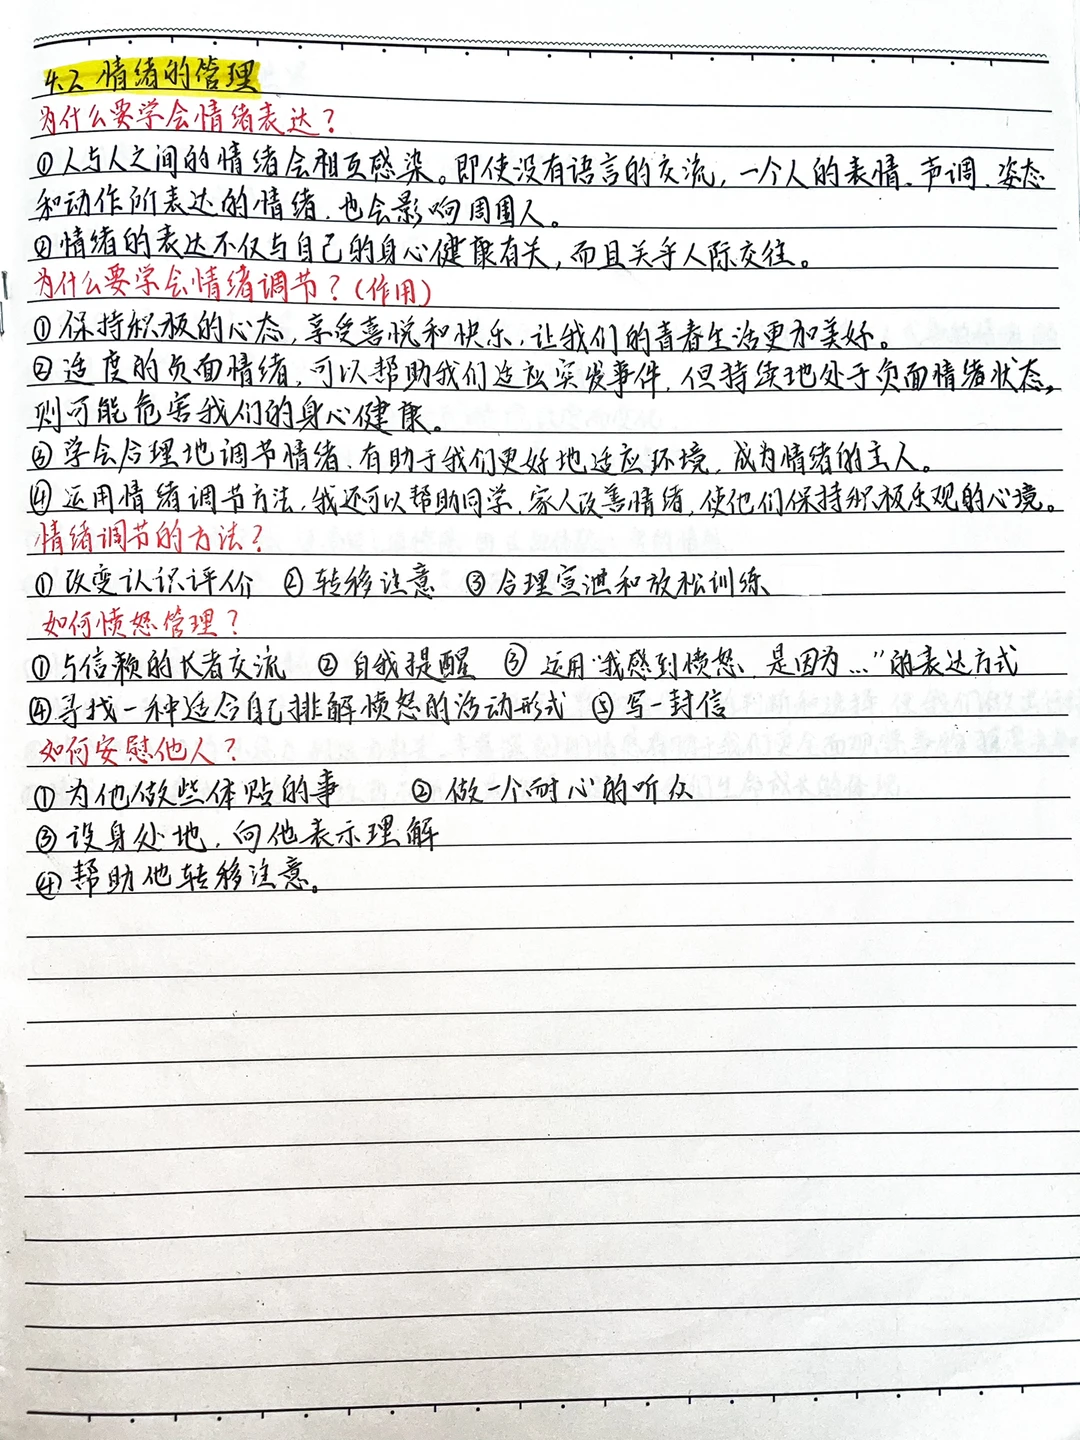 4.2 情绪的管理
为什么要学会情绪表达？
①人与人之间的情绪会相互感染。即使没有语言的交流，一个人的表情、声调、姿态
和动作所表达的情绪，也会影响周围人。
②情绪的表达不仅与自己的身心健康有关，而且关乎人际交往。
为什么要学会情绪调节？（作用）
①保持积极的心态，享受喜悦和快乐，让我们的青春生活更加美好。
②适度的负面情绪，可以帮助我们适应突发事件，但持续地处于负面情绪状态，
则可能危害我们的身心健康。
③学会合理地调节情绪，有助于我们更好地适应环境，成为情绪的主人。
④运用情绪调节方法，我还可以帮助同学、家人改善情绪，使他们保持积极乐观的心境。
情绪调节的方法？
①改变认识评价 ②转移注意 ③合理宣泄和放松训练
如何愤怒管理？
①与信赖的长者交流 ②自我提醒 ③运用“我感到愤怒，是因为…”的表达方式
④寻找一种适合自己排解愤怒的活动形式 ⑤写一封信
如何安慰他人？
①为他做些体贴的事 ②做一个耐心的听众
③设身处地，向他表示理解
④帮助他转移注意。